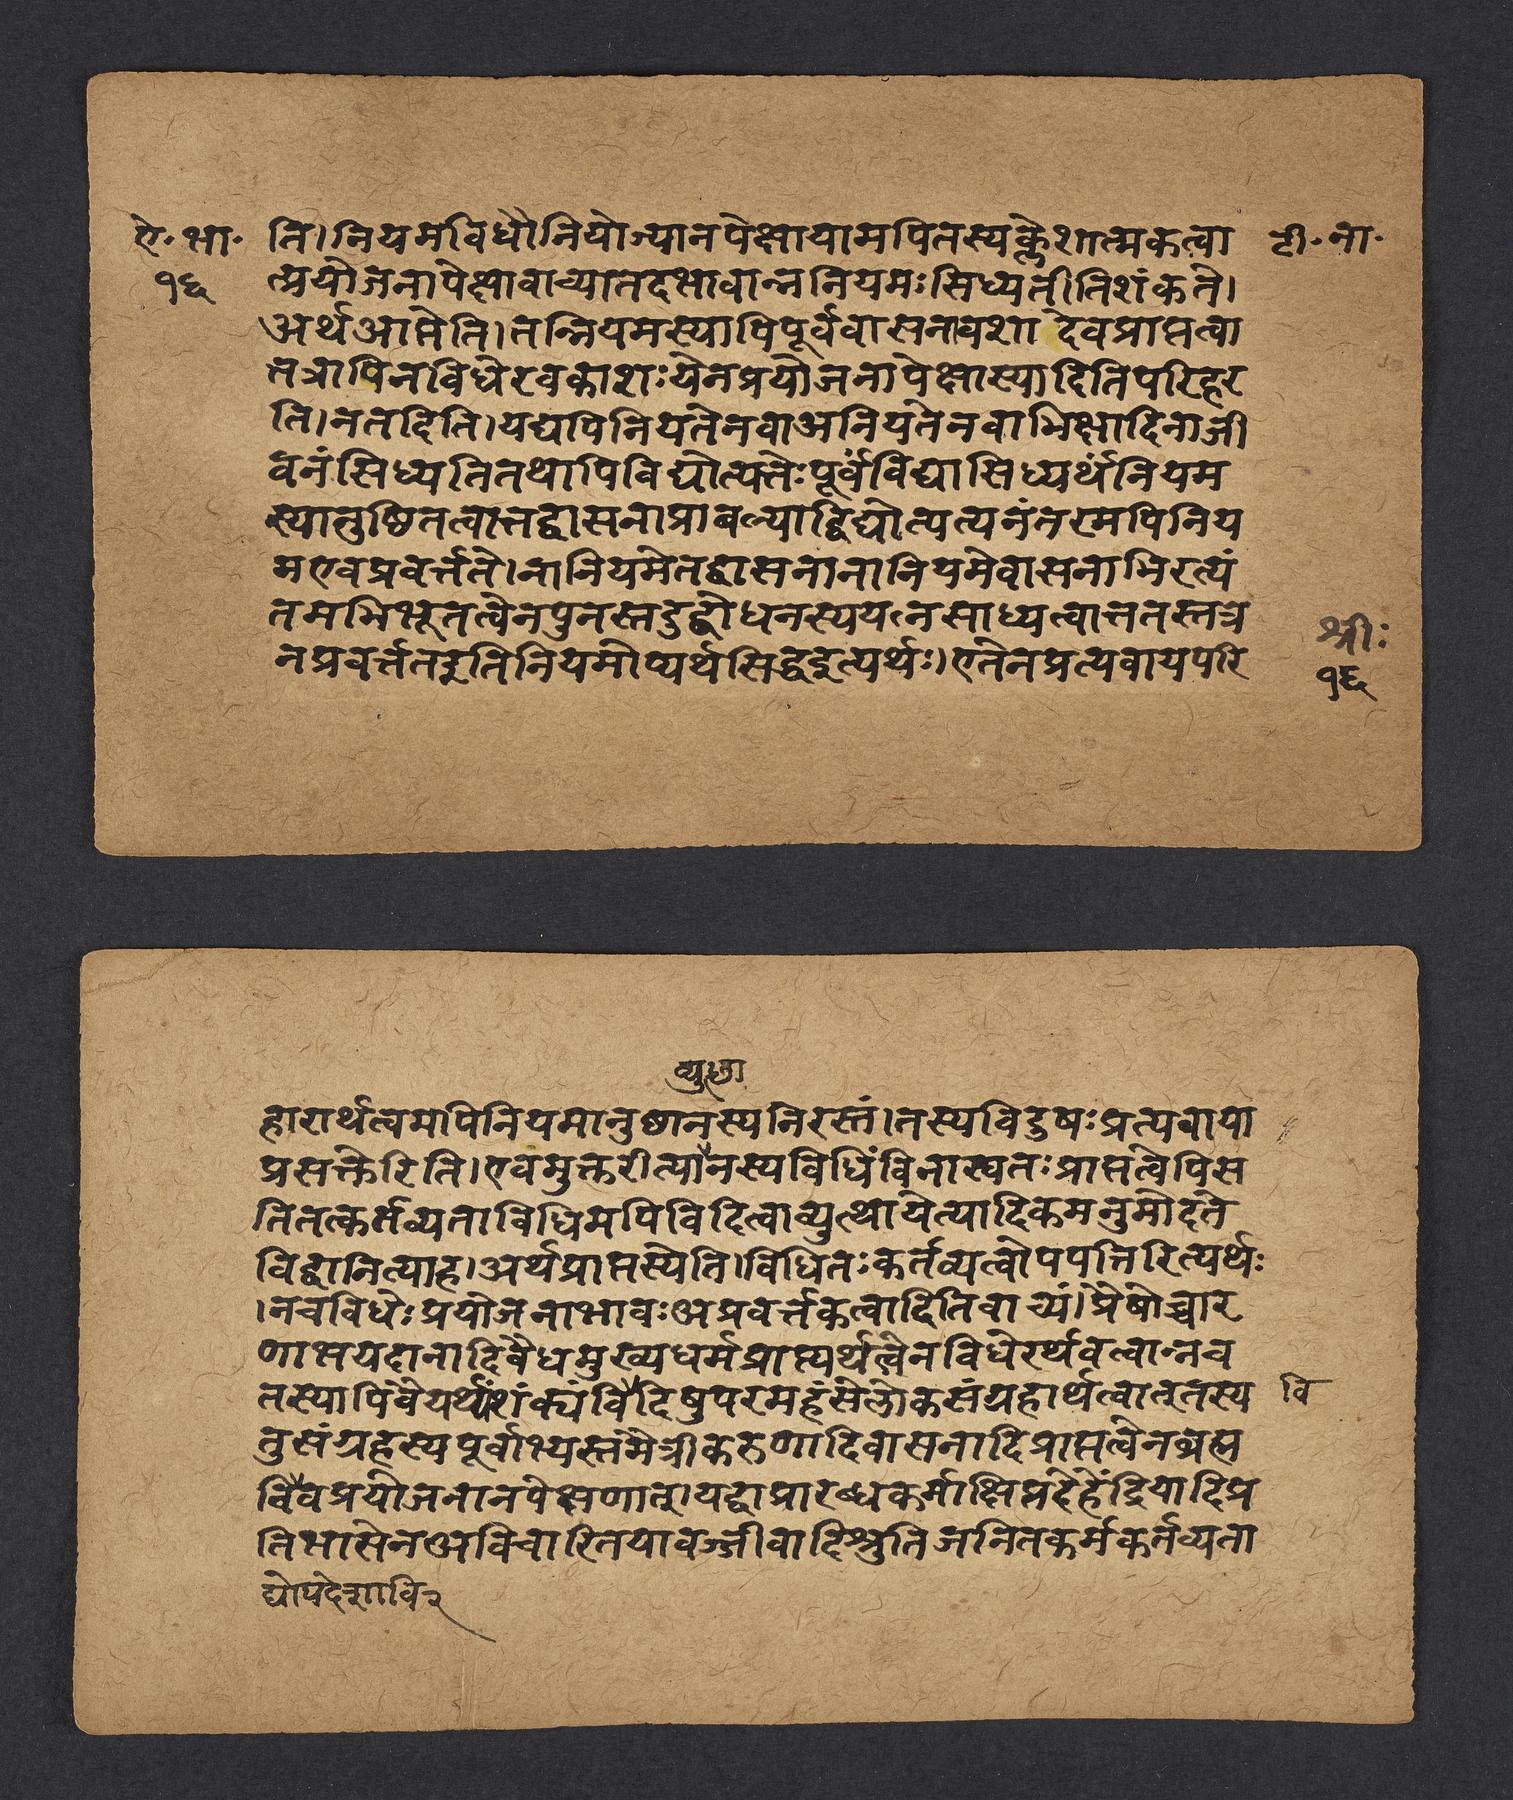 ऐ॰ भा॰
१६
टी॰ ना॰
ति।नियमविधौनियोज्यानपेक्षायामपितस्यक्लेशात्मकत्वा
त्प्रयोजनापेक्षावाच्यातदभावान्ननियमःसिध्यतीतिशंकते।
अर्थआप्तेति।तन्नियमस्यापिपूर्ववासनावशादेवप्राप्तत्वा
तत्रापिनविधेरवकाशःयेनप्रयोजनापेक्षास्यादितिपरिहर
ति।नतदिति।यद्यपिनियतेनवाअनियतेनवाभिक्षादिनाजी
वनंसिध्यतितथापिविद्योत्पत्तेःपूर्वंविद्यासिध्यर्थंनियम
स्यानुष्ठितत्वात्तद्वासनाप्राबल्याद्विद्योत्पत्यनंतरमपिनिय
मएवप्रवर्त्तते।नानियमेतद्वासनानानियमेवासनाभिरत्यं
तमभिभूतत्वेनपुनस्तदुद्बोधनस्ययत्नसाध्यत्वात्ततस्तत्रे
नप्रवर्त्ततइतिनियमोप्यर्थसिद्धइत्यर्थः।एतेनप्रत्यवायपरि
श्रीः
१६
व्युत्था
हारार्थत्वमपिनियमानुष्ठानस्यनिरस्तं।तस्यविदुषःप्रत्यवाया
प्रसक्तेरिति।एवमुक्तरीत्यानस्यविधिंविनास्वतःप्राप्तत्वेपिस
तितत्कर्तव्यताविधिमपिविदित्वाव्युत्थायेत्यादिकमनुमोदते
विद्वानित्याह।अर्थप्राप्तस्येति।विधितःकर्तव्यत्वोपपत्तिरित्यर्थः
।नचविधेःप्रयोजनाभावःअप्रवर्त्तकत्वादितिवाच्यं।प्रैषोच्चार
णाभयदानादिवैधमुख्यधर्मप्राप्त्यर्थत्वेनविधेरर्थवत्वान्नच
तस्यापिवैयर्थ्यंशंक्यंविदिषुपरमहंसेलोकसंग्रहार्थत्वात्तस्य
वि
तुसंग्रहस्यपूर्वाभ्यस्तमैत्रीकरुणादिवासनादिप्राप्तत्वेनब्रह्म
विवप्रयोजनानपेक्षणात्।यद्वाप्रारब्धकर्माक्षिप्तदेहेंद्रियादिप्र
तिभासेनअविचारितयावज्जीवादिश्रुतिजनितकर्मकर्तव्यता
द्योपदेशावि२